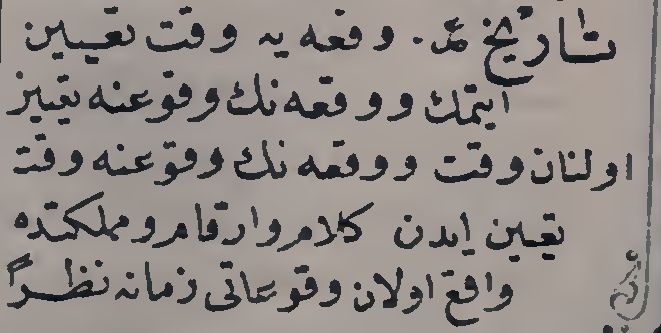 تاریخ عد. وقعه یه وقت تعیین
ایتمك و وقعه نك وقوعنه تعییز
اولنان وقت و وقعه نك وقوعنه وقت
تعیین ایدن كلام و ارقام و مملكتده
واقع اولان وقوعاتی زمانه نظراً